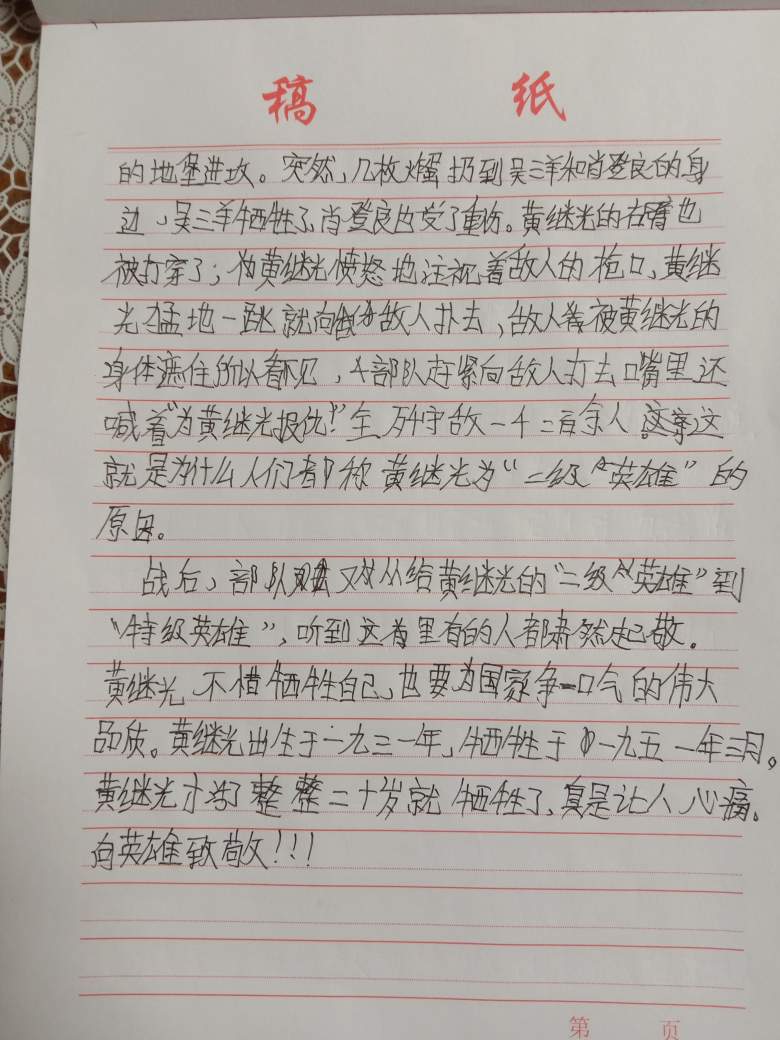 稿 纸
的地堡进攻。突然,几枚火蛋扔到吴三洋和肖登良的身
边,吴三羊牺牲了,肖登良也受了重伤。黄继光的右臂也
被打穿了;黄继光愤怒地注视着敌人的枪口,黄继
光猛地一跳就向敌人扑去,敌人被黄继光的
身体遮住所以看不见,大部队赶紧向敌人打去口嘴里还
喊着“为黄继光报仇!”全歼守敌一千二百余人。这
就是为什么人们都称黄继光为“二级英雄”的
原因。
战后,部队又从给黄继光的“二级英雄”到
“特级英雄”,听到这里有的人都肃然起敬。
黄继光不惜牺牲自己,也要为国家争一口气的伟大
品质。黄继光出生于一九三一年,牺牲于一九五一年三月。
黄继光才活了整整二十岁就牺牲了,真是让人心痛。
向英雄致敬!!!
第 页